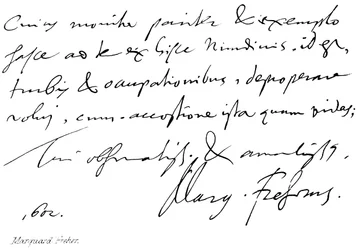 Cuius monitu pariter & exemplo
hasce ad te ex hisce Nundinis, id est,
turbis & occupationibus, deproperare
volui, cum accessione ista quam vides;
Tui observantiss. & amantiss.
Marq. Freherus.
1602.
Marquard Freher.